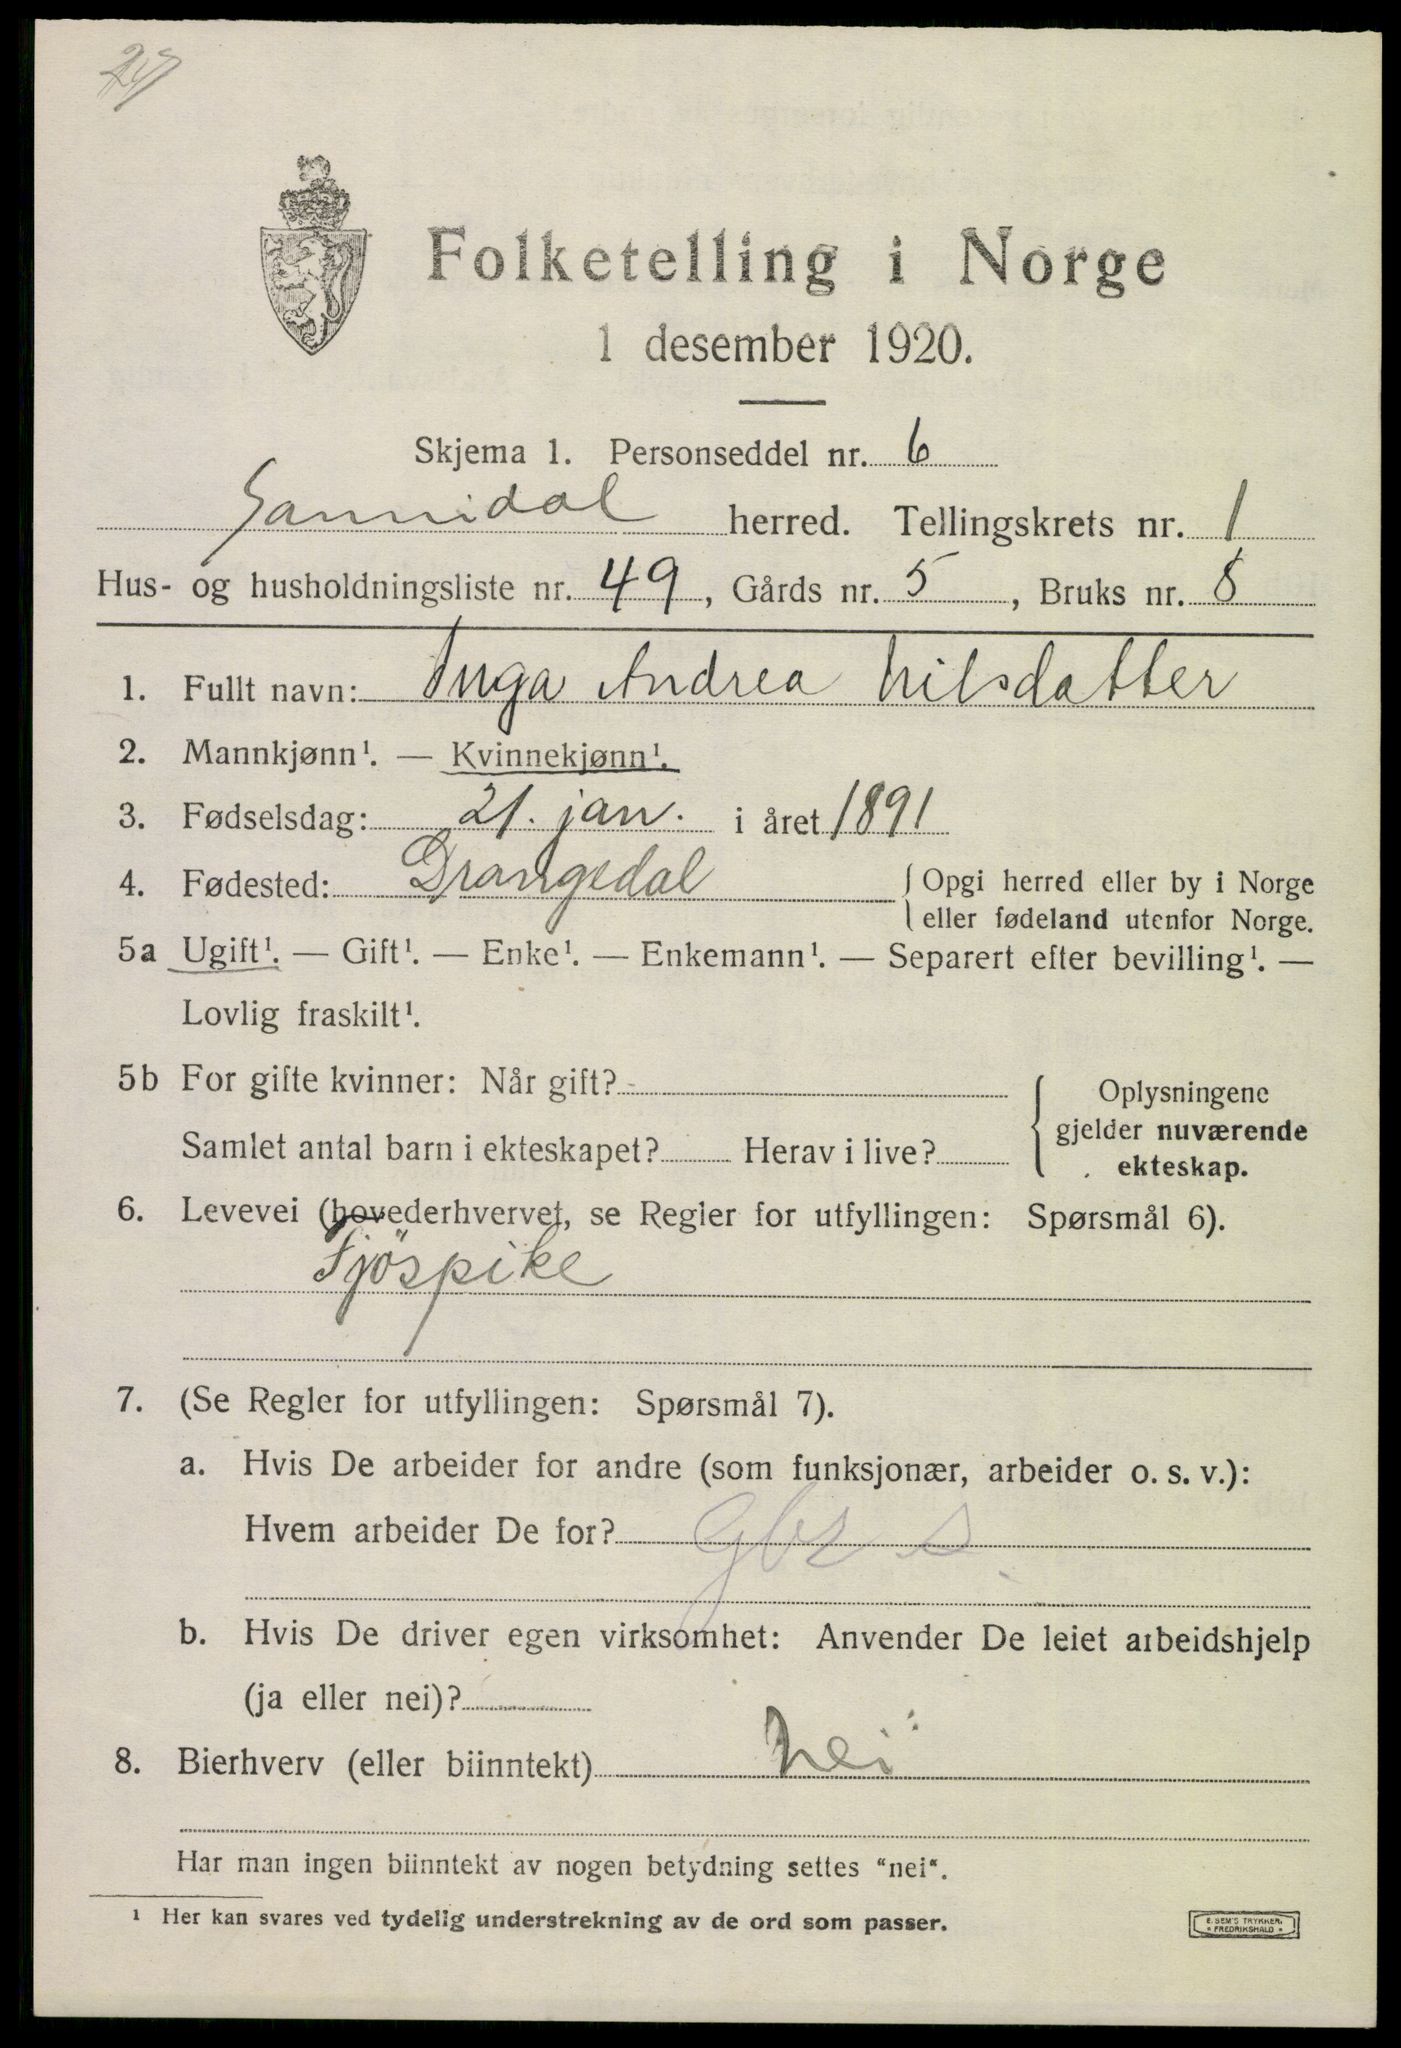 Folketelling i Norge
1 desember 1920.
Skjema 1. Personseddel nr. 6
Sannidal herred. Tellingskrets nr. 1
Hus- og husholdningsliste nr. 49, Gårds nr. 5, Bruks nr. 8
1. Fullt navn: Inga Andrea Nilsdatter
2. Mannkjønn¹. — Kvinnekjønn¹.
3. Fødselsdag: 21. jan. i året 1891
4. Fødested: Drangedal { Opgi herred eller by i Norge
eller fødeland utenfor Norge.
5a Ugift¹. — Gift¹. — Enke¹. — Enkemann¹. — Separert efter bevilling¹. —
Lovlig fraskilt¹.
5b For gifte kvinner: Når gift?
Samlet antal barn i ekteskapet? Herav i live?
{ Oplysningene
gjelder nuværende
ekteskap.
6. Levevei (hovederhvervet, se Regler for utfyllingen: Spørsmål 6).
Fjöspike
7. (Se Regler for utfyllingen: Spørsmål 7).
a. Hvis De arbeider for andre (som funksjonær, arbeider o. s. v.):
Hvem arbeider De for? Gbr s.
b. Hvis De driver egen virksomhet: Anvender De leiet arbeidshjelp
(ja eller nei)?
8. Bierhverv (eller biinntekt) Nei
Har man ingen biinntekt av nogen betydning settes "nei".
¹ Her kan svares ved tydelig understrekning av de ord som passer.
E. SEM'S TRYKKER.
FREDRIKSHALD